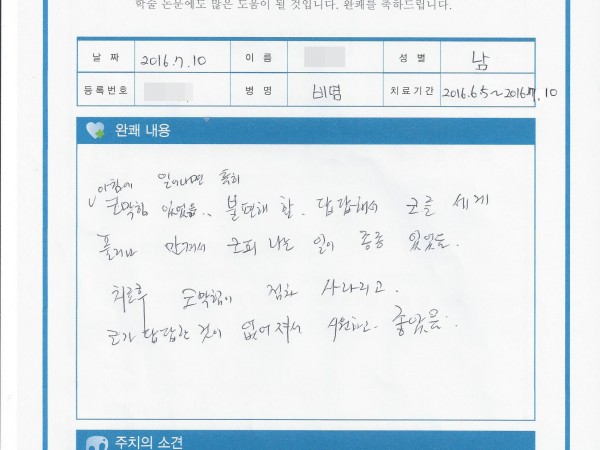 학술 논문에도 많은 도움이 될 것입니다. 완쾌를 축하드립니다.
날 짜 2016.7.10 이 름 성 별 남
등록번호 병 명 비염 치료기간 2016.6.5~2016.7.10
완쾌 내용
아침에 일어나면 특히
코막힘 있었음. 불편해 함. 답답해서 코를 세게
풀거나 만져서 코피 나는 일이 종종 있었음.
치료후 코막힘이 점차 사라지고.
코가 답답한 것이 없어져서 시원하고 좋았음.
주치의 소견